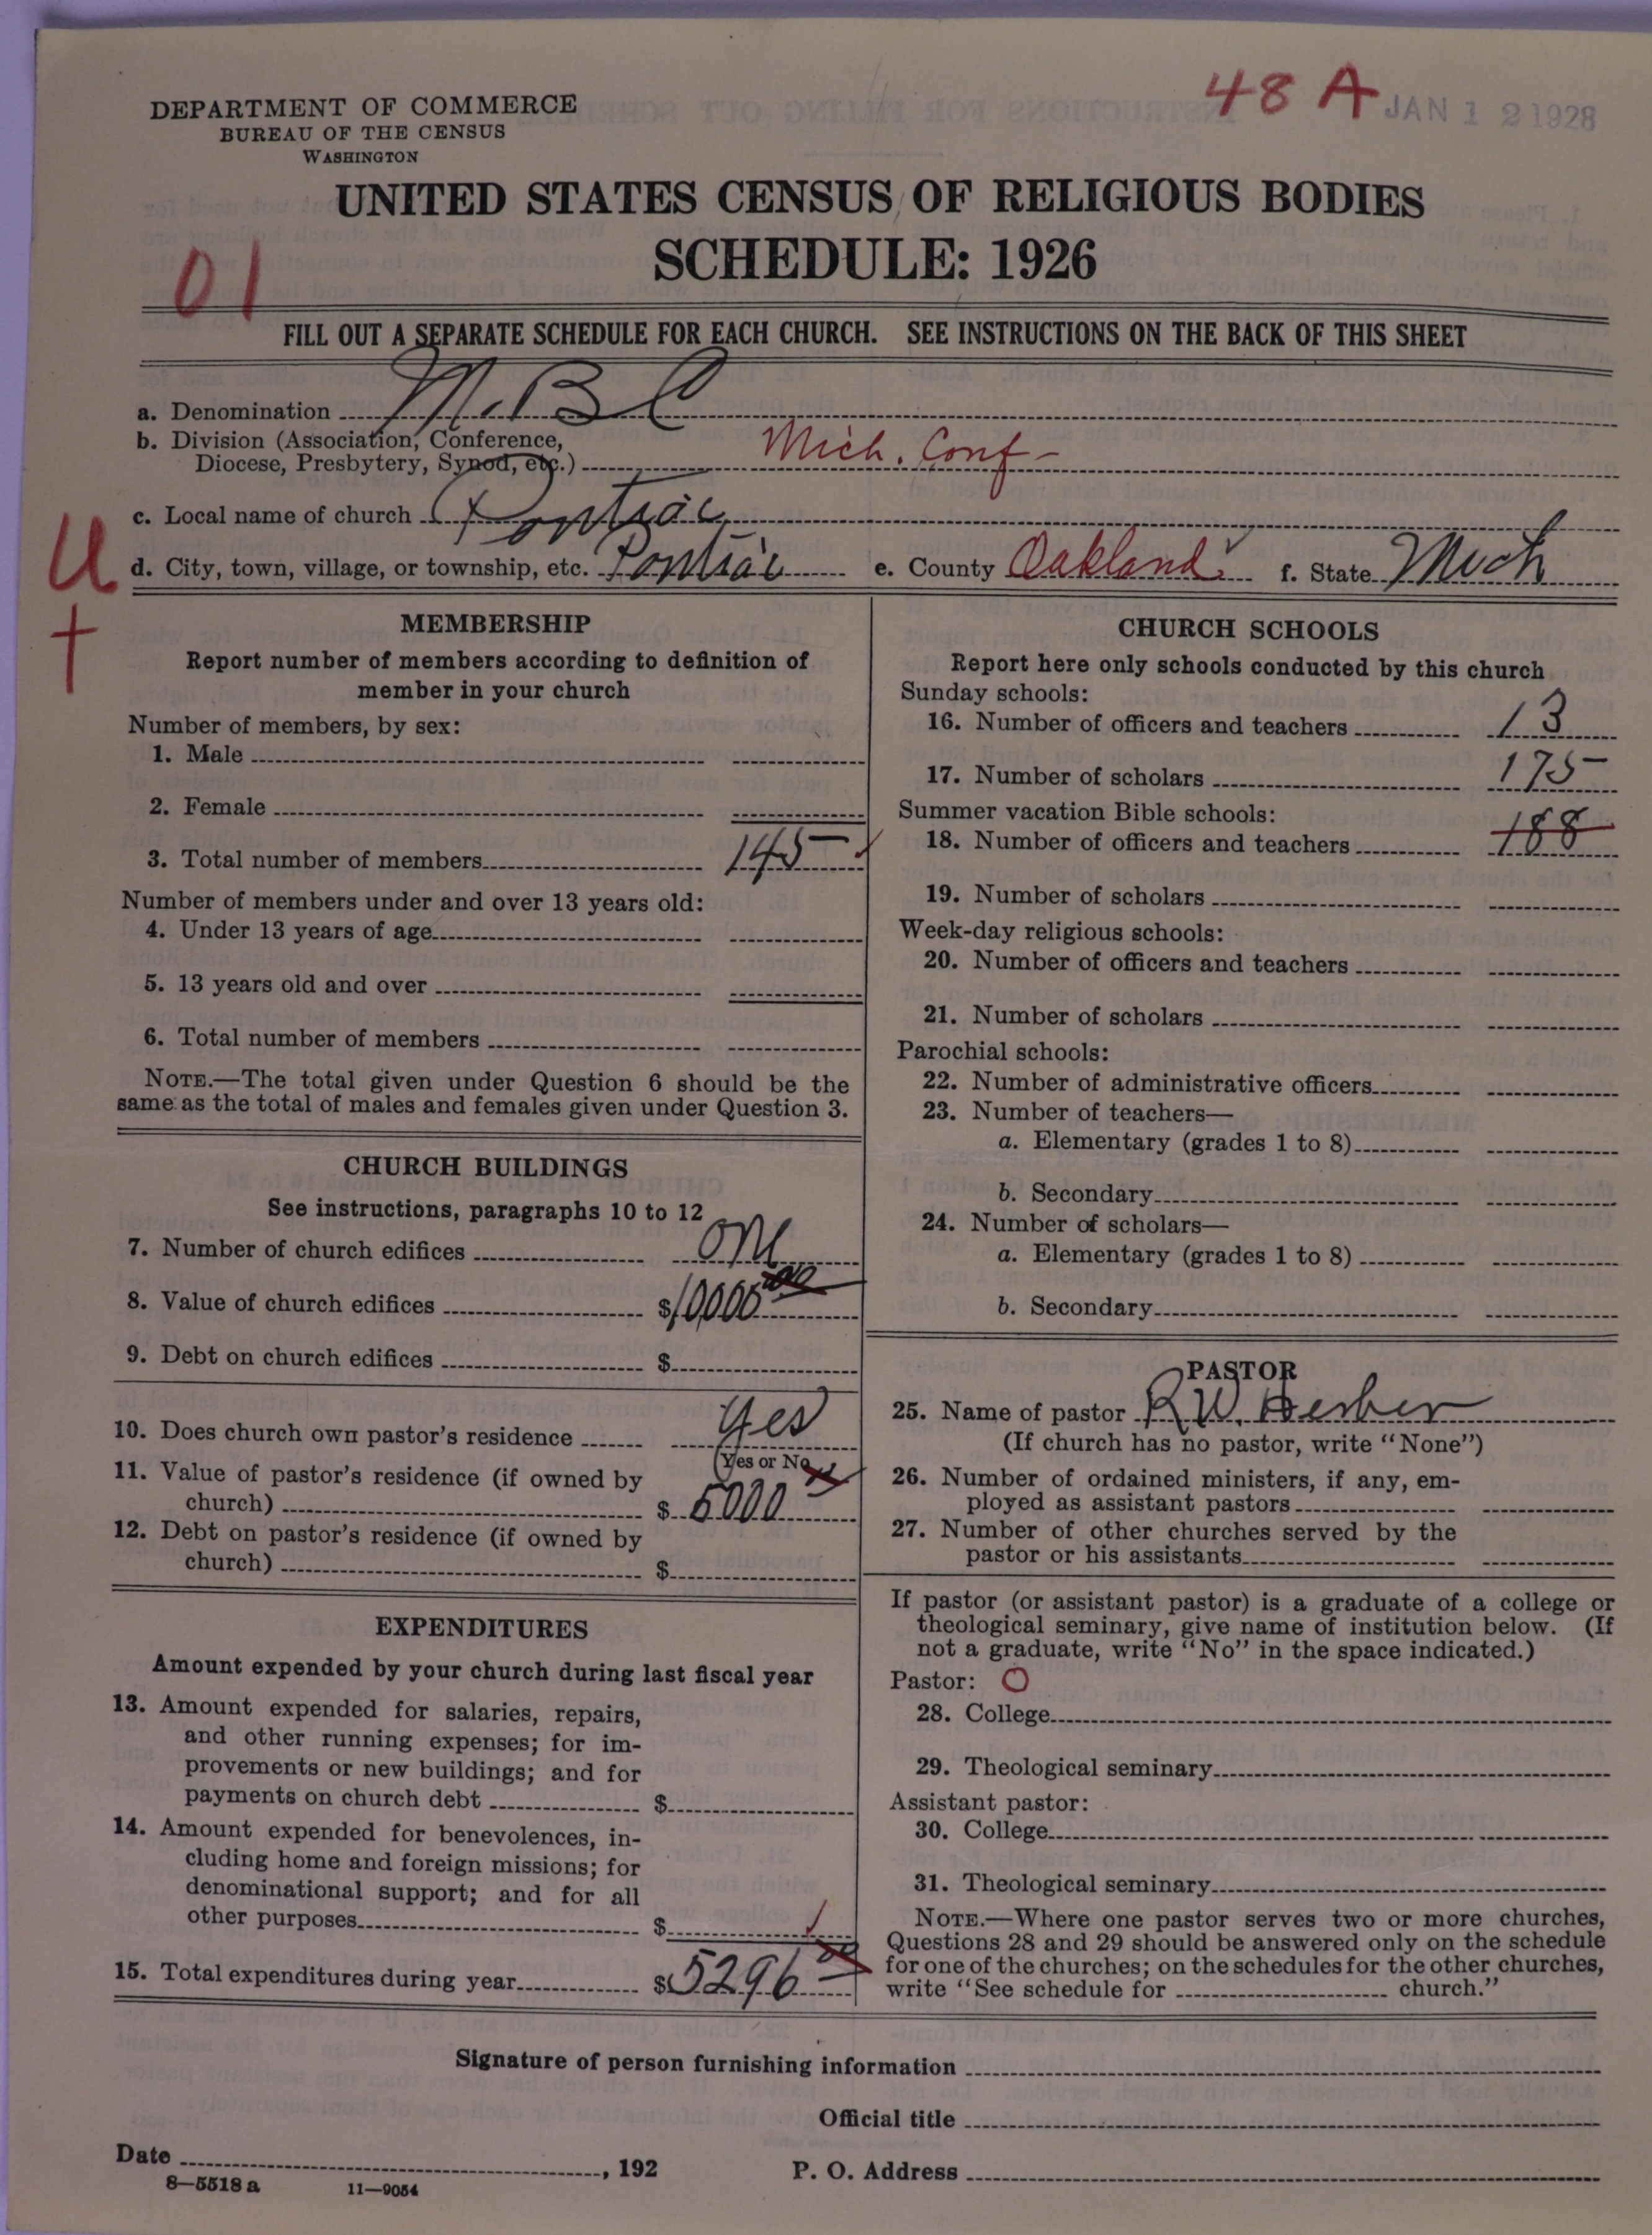 48 A JAN 12 1928
DEPARTMENT OF COMMERCE
BUREAU OF THE CENSUS
WASHINGTON
UNITED STATES CENSUS OF RELIGIOUS BODIES
SCHEDULE: 1926
01
FILL OUT A SEPARATE SCHEDULE FOR EACH CHURCH. SEE INSTRUCTIONS ON THE BACK OF THIS SHEET
a. Denomination M. B C
b. Division (Association, Conference,
Diocese, Presbytery, Synod, etc.) Mich. Conf-
c. Local name of church Pontiac
U d. City, town, village, or township, etc. Pontiac e. County Oakland f. State Mich
MEMBERSHIP
Report number of members according to definition of
member in your church
Number of members, by sex:
1. Male
2. Female
3. Total number of members 145
Number of members under and over 13 years old:
4. Under 13 years of age
5. 13 years old and over
6. Total number of members
NOTE.—The total given under Question 6 should be the
same as the total of males and females given under Question 3.
CHURCH BUILDINGS
See instructions, paragraphs 10 to 12
7. Number of church edifices one
8. Value of church edifices $10,000 00
9. Debt on church edifices $
10. Does church own pastor's residence Yes
(Yes or No)
11. Value of pastor's residence (if owned by
church) $ 5000
12. Debt on pastor's residence (if owned by
church) $
EXPENDITURES
Amount expended by your church during last fiscal year
13. Amount expended for salaries, repairs,
and other running expenses; for im-
provements or new buildings; and for
payments on church debt $
14. Amount expended for benevolences, in-
cluding home and foreign missions; for
denominational support; and for all
other purposes $
15. Total expenditures during year $5296 00
CHURCH SCHOOLS
Report here only schools conducted by this church
Sunday schools:
16. Number of officers and teachers 13
17. Number of scholars 175
Summer vacation Bible schools:
18. Number of officers and teachers 188
19. Number of scholars
Week-day religious schools:
20. Number of officers and teachers
21. Number of scholars
Parochial schools:
22. Number of administrative officers
23. Number of teachers—
a. Elementary (grades 1 to 8)
b. Secondary
24. Number of scholars—
a. Elementary (grades 1 to 8)
b. Secondary
PASTOR
25. Name of pastor R W. Herber
(If church has no pastor, write "None")
26. Number of ordained ministers, if any, em-
ployed as assistant pastors
27. Number of other churches served by the
pastor or his assistants
If pastor (or assistant pastor) is a graduate of a college or
theological seminary, give name of institution below. (If
not a graduate, write "No" in the space indicated.)
Pastor: O
28. College
29. Theological seminary
Assistant pastor:
30. College
31. Theological seminary
NOTE.—Where one pastor serves two or more churches,
Questions 28 and 29 should be answered only on the schedule
for one of the churches; on the schedules for the other churches,
write "See schedule for church."
Signature of person furnishing information
Official title
Date , 192 P. O. Address
8—5518 a 11—9054